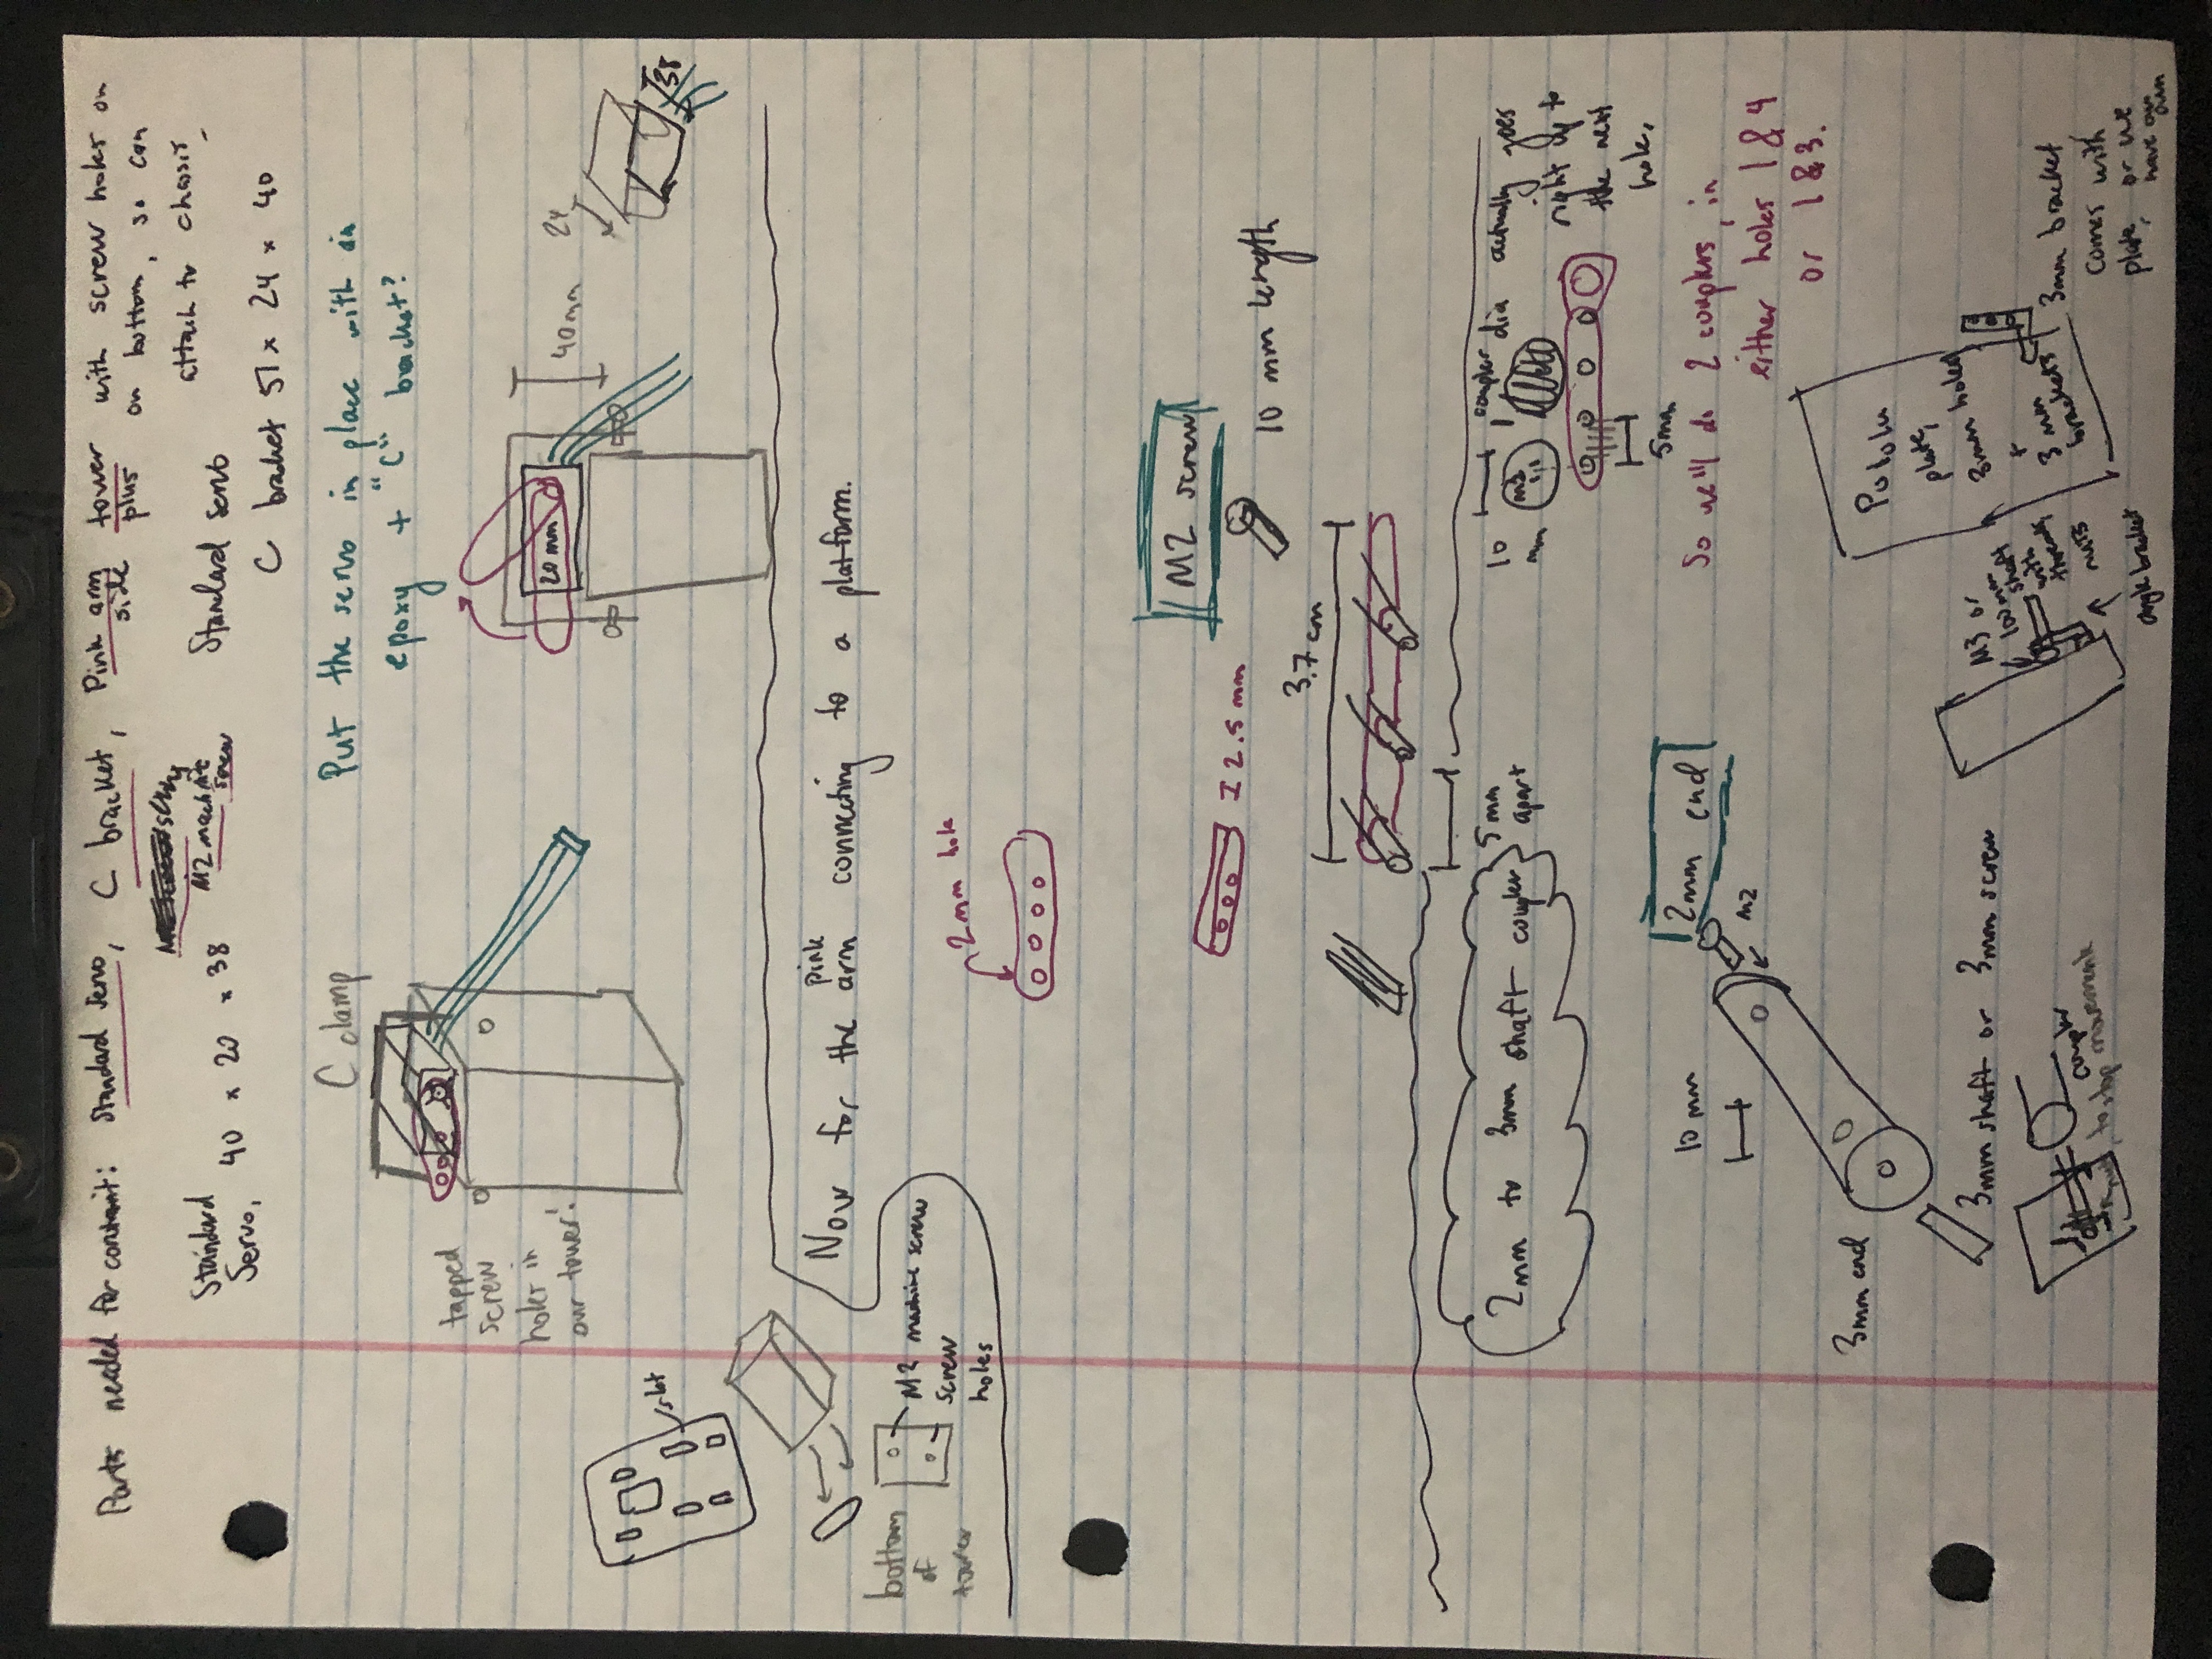 Parts needed for contraint: Standard servo, C bracket, Pink arm tower with screw holes on
side plus on bottom, so can
attach to chassis.
M2 machine
screw
Standard
Servo, 40 x 20 x 38
Standard servo
C bracket 51 x 24 x 40
C clamp
Put the servo in place with an
epoxy + "C" bracket?
tapped
screw
holes in
our tower!
20 mm
40mm
24
38
slot
Now for the pink arm connecting to a platform.
M2 machine screw
screw
holes
bottom
of
tower
2mm hole
M2 screw
10 mm length
I 2.5 mm
3.7 cm
5mm
apart
2mm to 3mm shaft coupler
10
mm
coupler dia actually goes
right up to
the next
hole,
M3
5mm
So we'll do 2 couplers, in
either holes 1 & 4
or 1 & 3.
2mm end
M2
10 mm
3mm end
3mm shaft or 3mm screw
coupler
to stop movement
M3 or
100 mm
shaft
with
thread,
nuts
angle bracket
Pololu
plate,
3mm holes
+
3 mm
brackets
3mm bracket
comes with
plate,
or we
have our
own